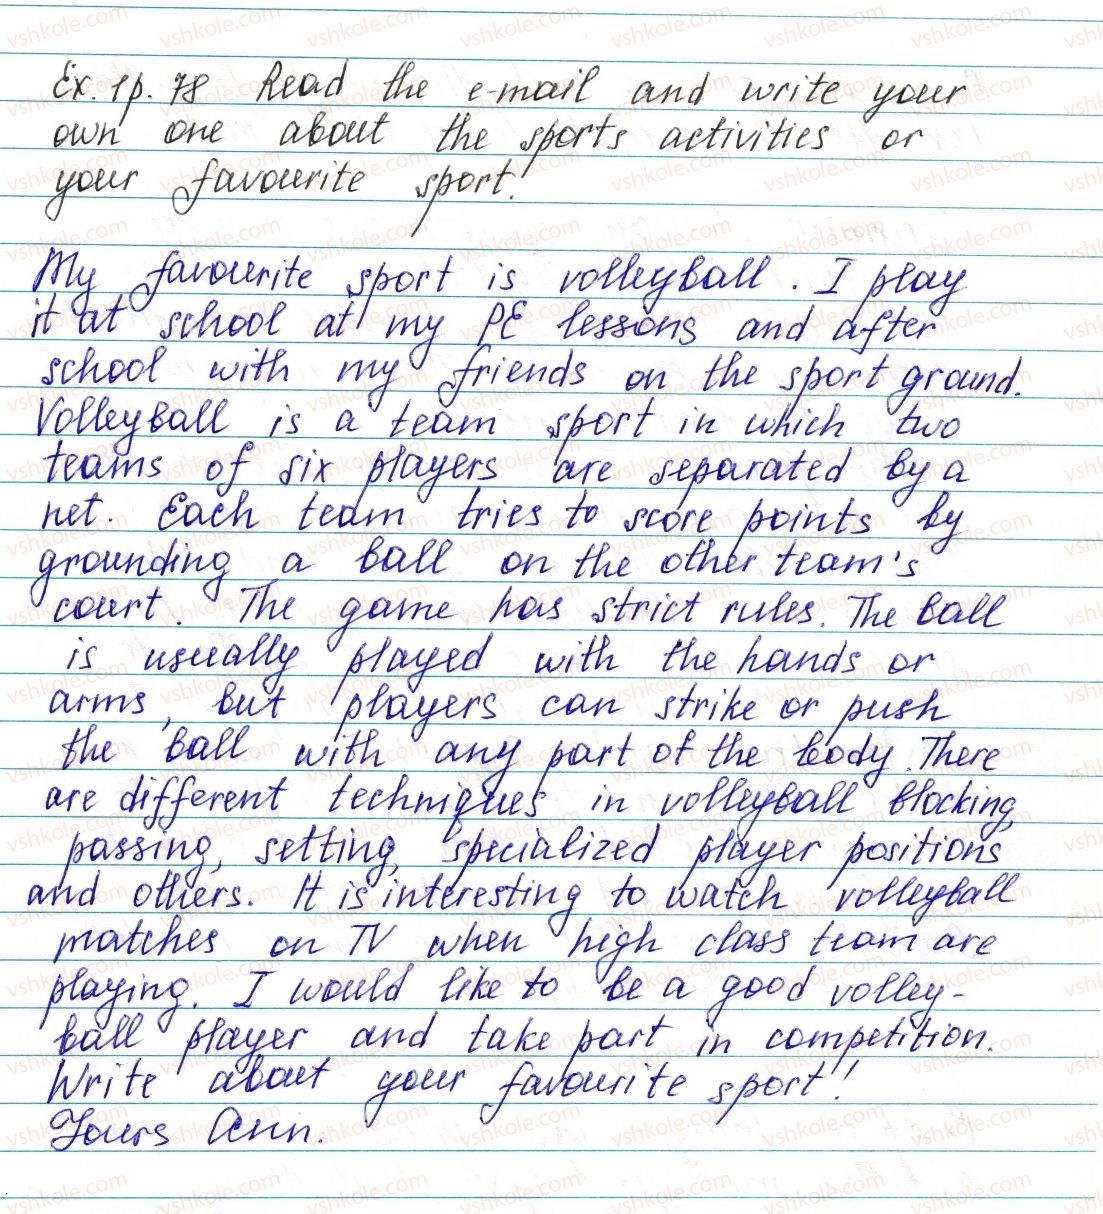 Ex. 1p. 78 Read the e-mail and write your
own one about the sports activities or
your favourite sport!
My favourite sport is volleyball. I play
it at school at my PE lessons and after
school with my friends on the sport ground.
Volleyball is a team sport in which two
teams of six players are separated by a
net. Each team tries to score points by
grounding a ball on the other team's
court. The game has strict rules. The ball
is usually played with the hands or
arms, but players can strike or push
the ball with any part of the body. There
are different techniques in volleyball blocking,
passing, setting, specialized player positions
and others. It is interesting to watch volleyball
matches on TV when high class team are
playing. I would like to be a good volley-
ball player and take part in competition.
Write about your favourite sport!
Yours Ann.